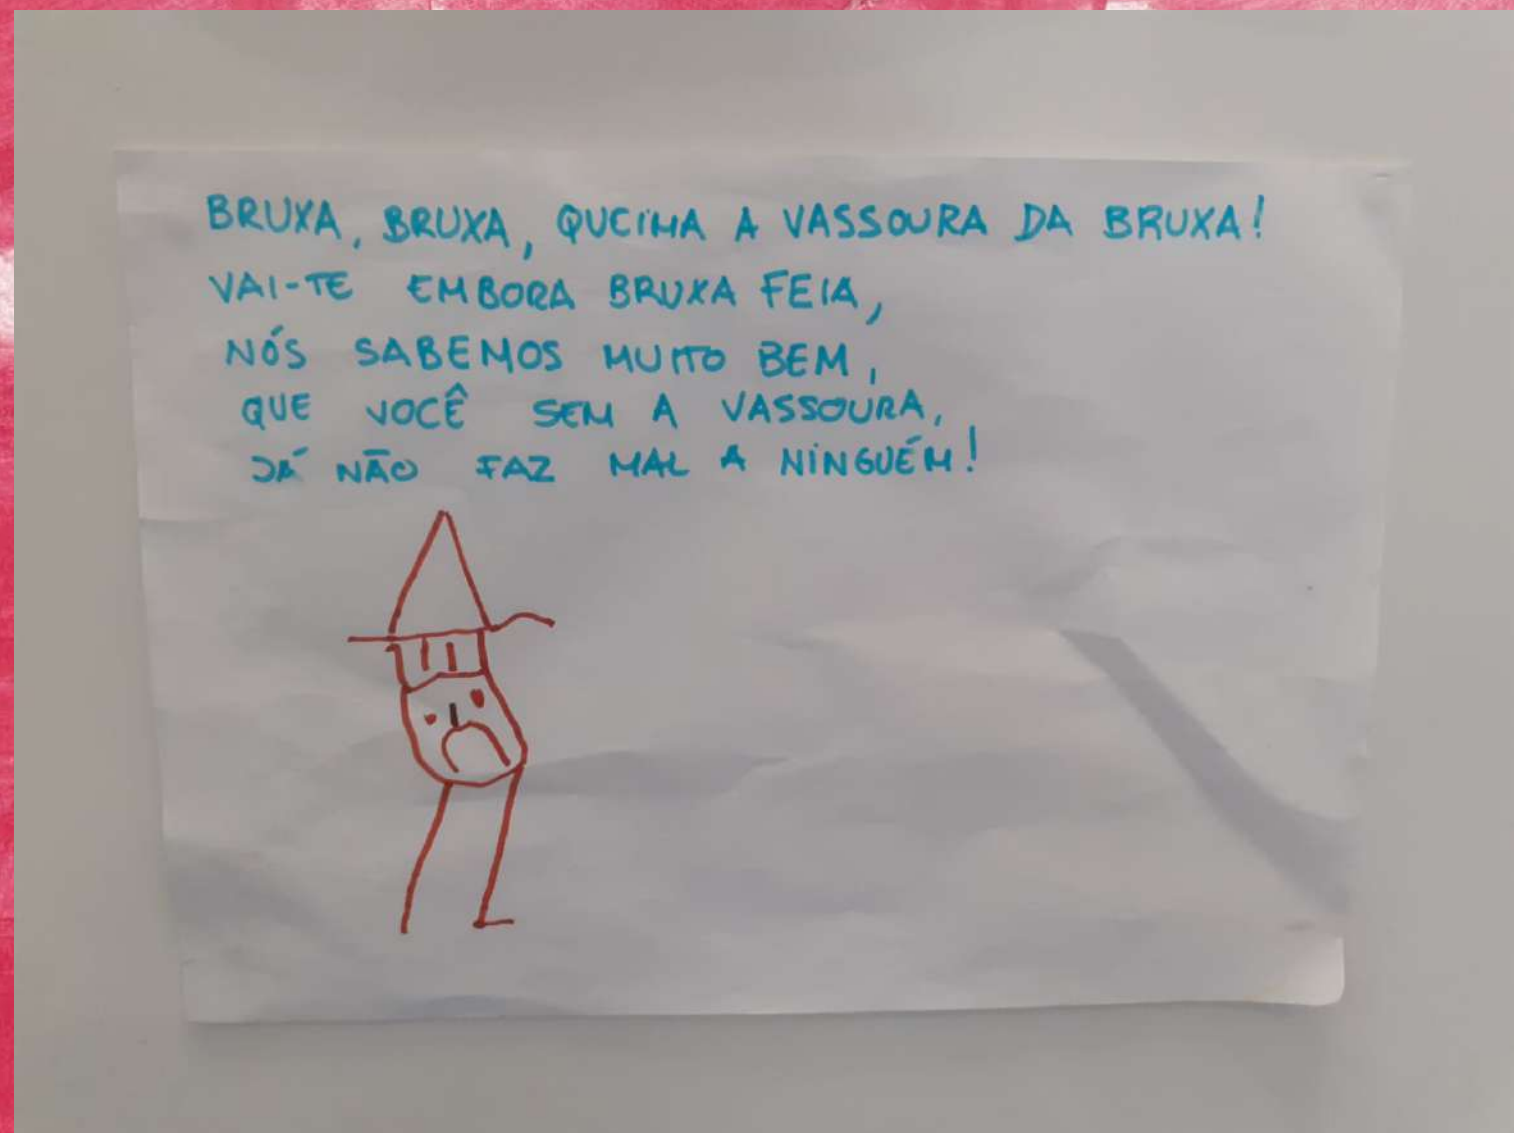 BRUXA, BRUXA, QUEIMA A VASSOURA DA BRUXA!
VAI-TE EMBORA BRUXA FEIA,
NÓS SABEMOS MUITO BEM,
QUE VOCÊ SEM A VASSOURA,
JÁ NÃO FAZ MAL A NINGUÉM!